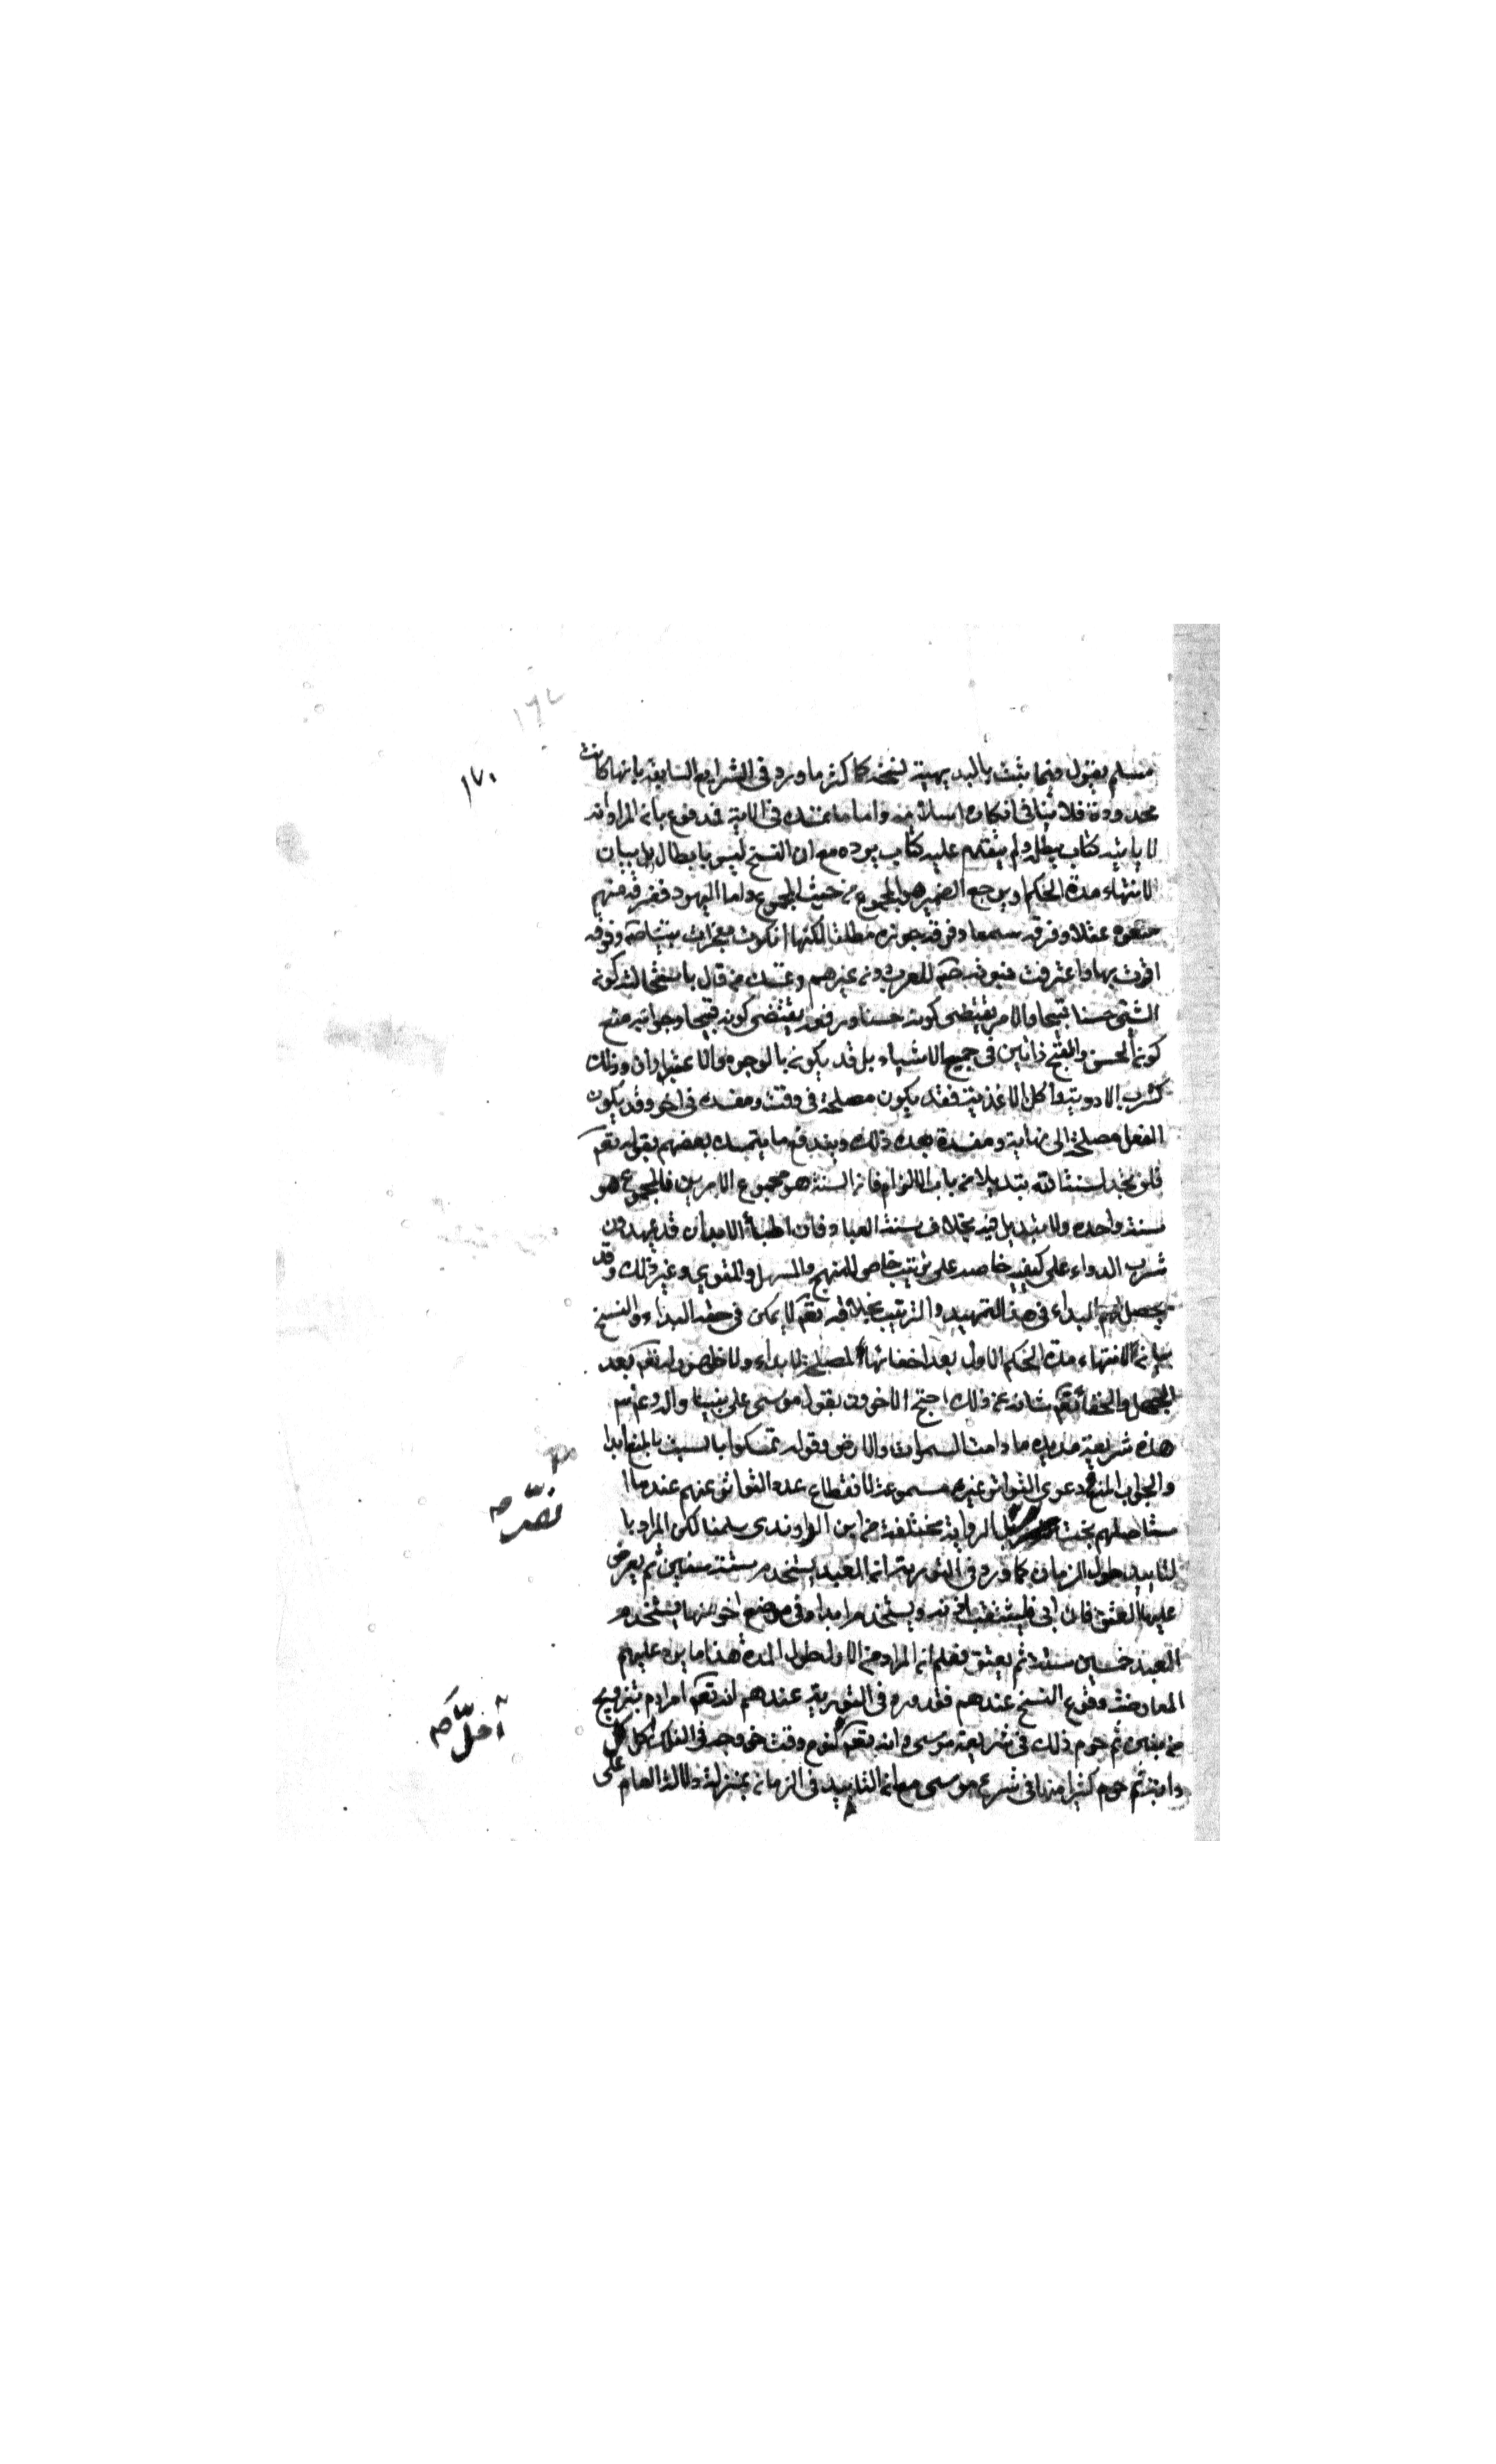 ١٦٧
١٧٠
مسلم يقول فيما يثبت بالبديهية لنسخه كاكثر ما ورد في الشرايع السابقة بانها كانت
محدودة فلا ينافي انكاره اسلامه واما ما تمسك في الاية فمدفوع بان المراد انه
لا ياتيه كتاب يبطله ولم يتقدم عليه كتاب يرده مع ان النسخ ليس بابطال بل بيان
لانتهاء مدة الحكم او يرجع الضمير هو المجموع من حيث المجموع واما اليهود ففرقة منهم
منعوه عقلا وفرقة سمعا وفرقة جوزه مطلقا لكنها انكرت معجزات نبينا صه وفرقة
اقرت بها واعترفت بنبوته صه للعرب دون غيرهم وتمسك من قال باستحالته كون
الشيء حسنا قبيحا والامر يقتضي كونه حسنا ورفعه يقتضي كونه قبيحا وجوابه منع
كون الحسن والقبح ذاتيين في جميع الاشياء بل قد يكون بالوجوه والاعتبارات وذلك
كشرب الادوية واكل الاغذية فقد يكون مصلحة في وقت ومفسدة في اخر وقد يكون
الفعل مصلحة الى نهاية ومفسدة بعد ذلك ويندفع ما يتمسك بعضهم بقوله تعه
فلن تجد لسنت الله تبديلا من باب الالزام فان السنة هو مجموع الامرين فالمجموع هو
سنة واحدة ولا تبديل فيه بخلاف سنة العباد فان اطباء الابدان قد يمهدون
شرب الدواء على كيفية خاصه على ترتيب خاص للمنضج والمسهل والمقوي وغير ذلك وقد
يحصل لهم البداء في هذا التمهيد والترتيب بخلافه تعه لا يمكن في حقه البداء والنسخ
بيان لانتهاء مدة الحكم الاول بعد اخفائها لمصلحة لا بداء ولا ظهور له تعه بعد
الجهل والخفاء تعه شانه عن ذلك احتج الاخرون بقول موسى على نبينا واله وعم
هذه شريعة مؤبدة ما دامت السموات والارض وقوله تمسكوا بالسبت ابدا
والجواب المنع ودعوى التواتر غير مسموعة لانقطاع عدد التواتر عنهم عند ما ا
ستاصلهم بخت بل الرواية مختلقة من ابن الراوندي سلمنا لكن المراد با
لتابيد طول الزمان كما ورد في التورية ان العبد يستخدم ستة سنين ثم يعرض
عليها العتق فان ابى فليثقب اذنه ويستخدم ابدا وفي موضع اخر منها يستخدم
العبد خمسين سنة ثم يعتق فعلم ان المراد من الاول طول المدة هذا ما يرد عليهم
المعارضة وقوع النسخ عندهم فقد ورد في التورية عندهم انه تعه امر ادم بتزويج
من بنيه ثم حرم ذلك في شريعة موسى وانه تعه لنوح وقت خروجه في الفلك اكل كل
دابة ثم حرم كثيرا منها في شرع موسى مع ان التابيد في الزمان بمنزلة دلالة العام على
نصر صه
احل صه